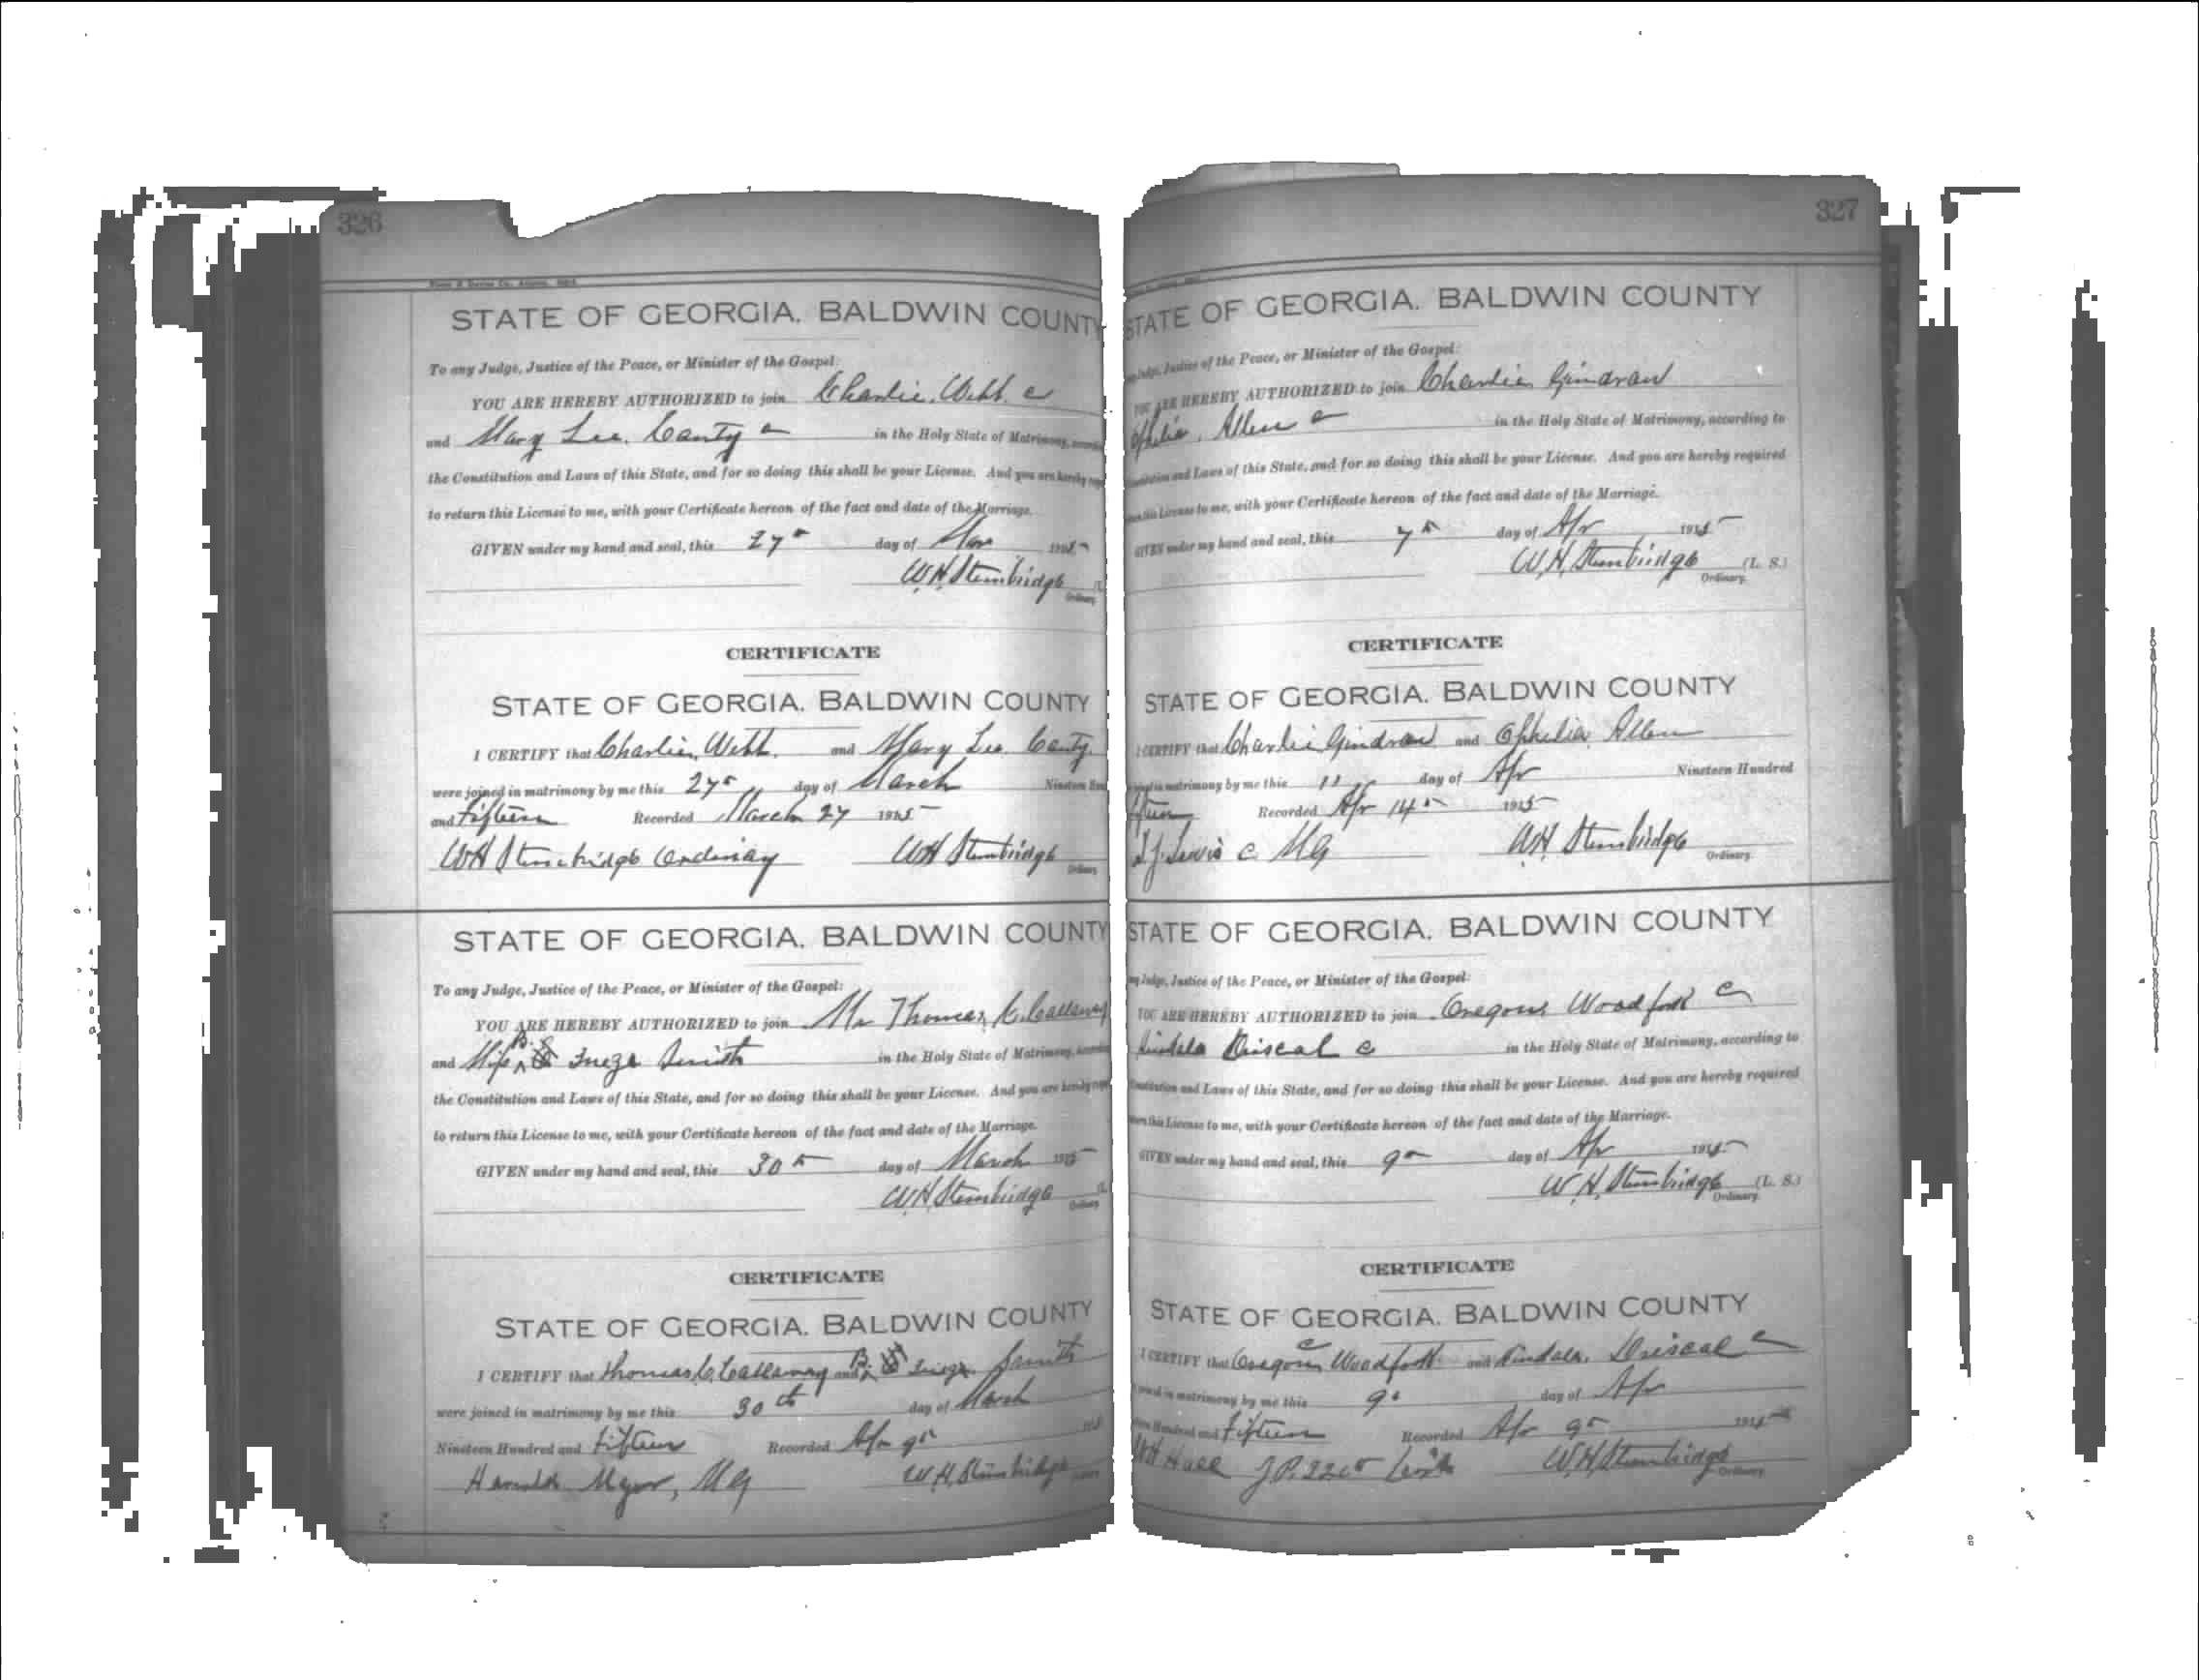 326
STATE OF GEORGIA. BALDWIN COUNTY
To any Judge, Justice of the Peace, or Minister of the Gospel:
YOU ARE HEREBY AUTHORIZED to join Charlie Webb c
and Mary Lee Canty c in the Holy State of Matrimony,
the Constitution and Laws of this State, and for so doing this shall be your License. And you are hereby
to return this License to me, with your Certificate hereon of the fact and date of the Marriage.
GIVEN under my hand and seal, this 27 day of Mar 1915
W.H. Stembridge
Ordinary
CERTIFICATE
STATE OF GEORGIA. BALDWIN COUNTY
I CERTIFY that Charlie Webb and Mary Lee Canty
were joined in matrimony by me this 27 day of March Nineteen
and Fifteen Recorded March 27 1915
WH Stembridge Ordinary WH Stembridge
Ordinary
STATE OF GEORGIA. BALDWIN COUNTY
To any Judge, Justice of the Peace, or Minister of the Gospel:
YOU ARE HEREBY AUTHORIZED to join Mr Thomas C. Callaway
and Miss B. Inez Smith in the Holy State of Matrimony,
the Constitution and Laws of this State, and for so doing this shall be your License. And you are hereby
to return this License to me, with your Certificate hereon of the fact and date of the Marriage.
GIVEN under my hand and seal, this 30 day of March 1915
W.H. Stembridge
Ordinary
CERTIFICATE
STATE OF GEORGIA. BALDWIN COUNTY
I CERTIFY that Thomas C. Callaway and B. Inez Smith
were joined in matrimony by me this 30th day of March
Nineteen Hundred and Fifteen Recorded Apr 9
Harold Myer, MG W.H. Stembridge
327
STATE OF GEORGIA. BALDWIN COUNTY
Judge, Justice of the Peace, or Minister of the Gospel:
YOU ARE HEREBY AUTHORIZED to join Charlie Gindraw
Ophelia Allen c in the Holy State of Matrimony, according to
Constitution and Laws of this State, and for so doing this shall be your License. And you are hereby required
this License to me, with your Certificate hereon of the fact and date of the Marriage.
GIVEN under my hand and seal, this 7th day of Apr 1915
W.H. Stembridge (L. S.)
Ordinary.
CERTIFICATE
STATE OF GEORGIA. BALDWIN COUNTY
I CERTIFY that Charlie Gindraw and Ophelia Allen
in matrimony by me this 11 day of Apr Nineteen Hundred
Fifteen Recorded Apr 14 1915
Lewis c MG WH Stembridge
Ordinary.
STATE OF GEORGIA. BALDWIN COUNTY
Judge, Justice of the Peace, or Minister of the Gospel:
YOU ARE HEREBY AUTHORIZED to join Oregous Woodfork c
Driscal c in the Holy State of Matrimony, according to
Constitution and Laws of this State, and for so doing this shall be your License. And you are hereby required
this License to me, with your Certificate hereon of the fact and date of the Marriage.
GIVEN under my hand and seal, this 9 day of Apr 1915
W.H. Stembridge (L. S.)
Ordinary.
CERTIFICATE
STATE OF GEORGIA. BALDWIN COUNTY
I CERTIFY that Oregous c Woodfork and Driscal c
in matrimony by me this 9 day of Apr
Hundred and Fifteen Recorded Apr 9 1915
WH Hall J.P. 320 W.H. Stembridge
Ordinary